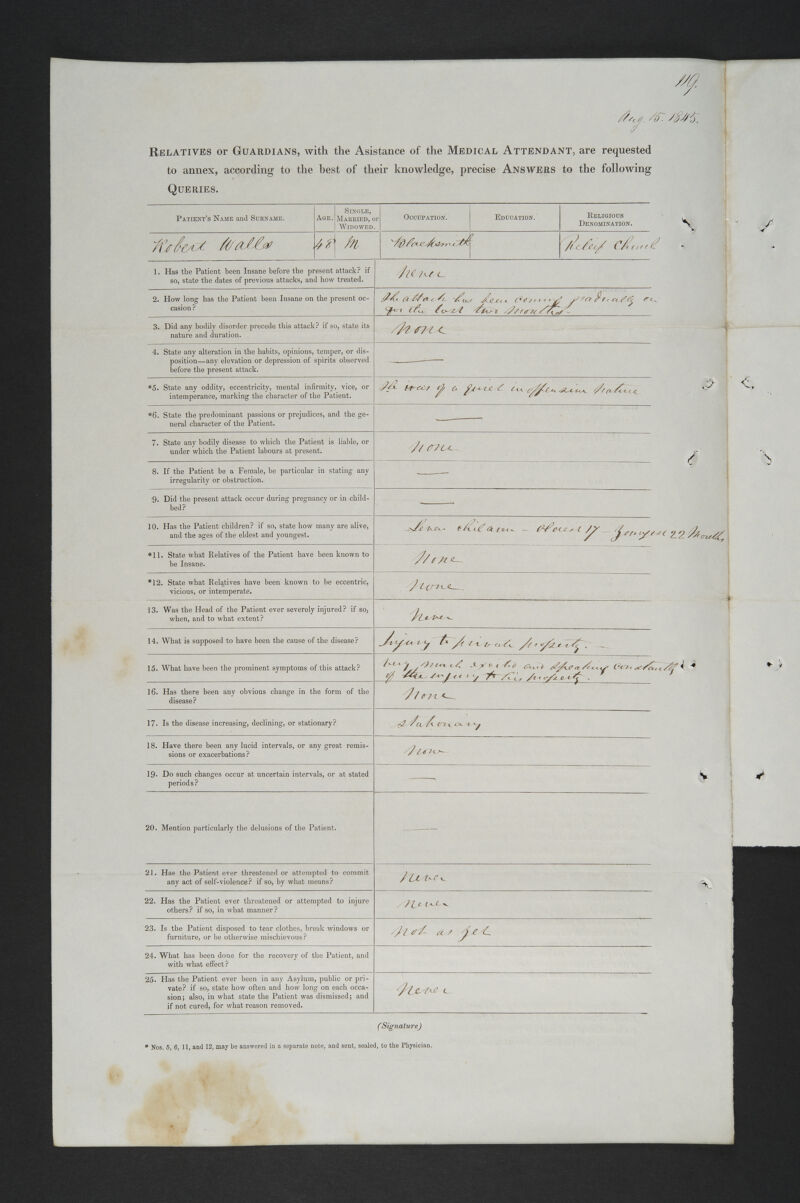 119.
Aug. 15. 1845.
RELATIVES or GUARDIANS, with the Asistance of the MEDICAL ATTENDANT, are requested
to annex, according to the best of their knowledge, precise ANSWERS to the following
QUERIES.
PATIENT'S NAME and SURNAME. AGE. SINGLE, MARRIED, or WIDOWED. OCCUPATION. EDUCATION. RELIGIOUS DENOMINATION.
Robert Walls 48 M Blacksmith Relief Church
1. Has the Patient been Insane before the present attack? if
so, state the dates of previous attacks, and how treated.
Never
2. How long has the Patient been Insane on the present oc-
casion?
The attack has been coming gradually on
for the last two Months.
3. Did any bodily disorder precede this attack? if so, state its
nature and duration.
None
4. State any alteration in the habits, opinions, temper, or dis-
position—any elevation or depression of spirits observed
before the present attack.
*5. State any oddity, eccentricity, mental infirmity, vice, or
intemperance, marking the character of the Patient.
He was of a quiet inoffensive Nature
*6. State the predominant passions or prejudices, and the ge-
neral character of the Patient.
7. State any bodily disease to which the Patient is liable, or
under which the Patient labours at present.
None
8. If the Patient be a Female, be particular in stating any
irregularity or obstruction.
9. Did the present attack occur during pregnancy or in child-
bed?
10. Has the Patient children? if so, state how many are alive,
and the ages of the eldest and youngest.
Seven children - Oldest 17 - Youngest 22 Months
*11. State what Relatives of the Patient have been known to
be Insane.
None
*12. State what Relatives have been known to be eccentric,
vicious, or intemperate.
None
13. Was the Head of the Patient ever severely injured? if so,
when, and to what extent?
Never
14. What is supposed to have been the cause of the disease?
Injury to private property. -
15. What have been the prominent symptoms of this attack?
Very much excited and speaking constantly
of the injury to his property.
16. Has there been any obvious change in the form of the
disease?
None
17. Is the disease increasing, declining, or stationary?
Stationary
18. Have there been any lucid intervals, or any great remis-
sions or exacerbations?
None
19. Do such changes occur at uncertain intervals, or at stated
periods?
20. Mention particularly the delusions of the Patient.
21. Has the Patient ever threatened or attempted to commit
any act of self-violence? if so, by what means?
Never
22. Has the Patient ever threatened or attempted to injure
others? if so, in what manner?
Never
23. Is the Patient disposed to tear clothes, break windows or
furniture, or be otherwise mischievous?
Not as yet
24. What has been done for the recovery of the Patient, and
with what effect?
25. Has the Patient ever been in any Asylum, public or pri-
vate? if so, state how often and how long on each occa-
sion; also, in what state the Patient was dismissed; and
if not cured, for what reason removed.
Never
(Signature)
* Nos. 5, 6, 11, and 12, may be answered in a separate note, and sent, sealed, to the Physician.